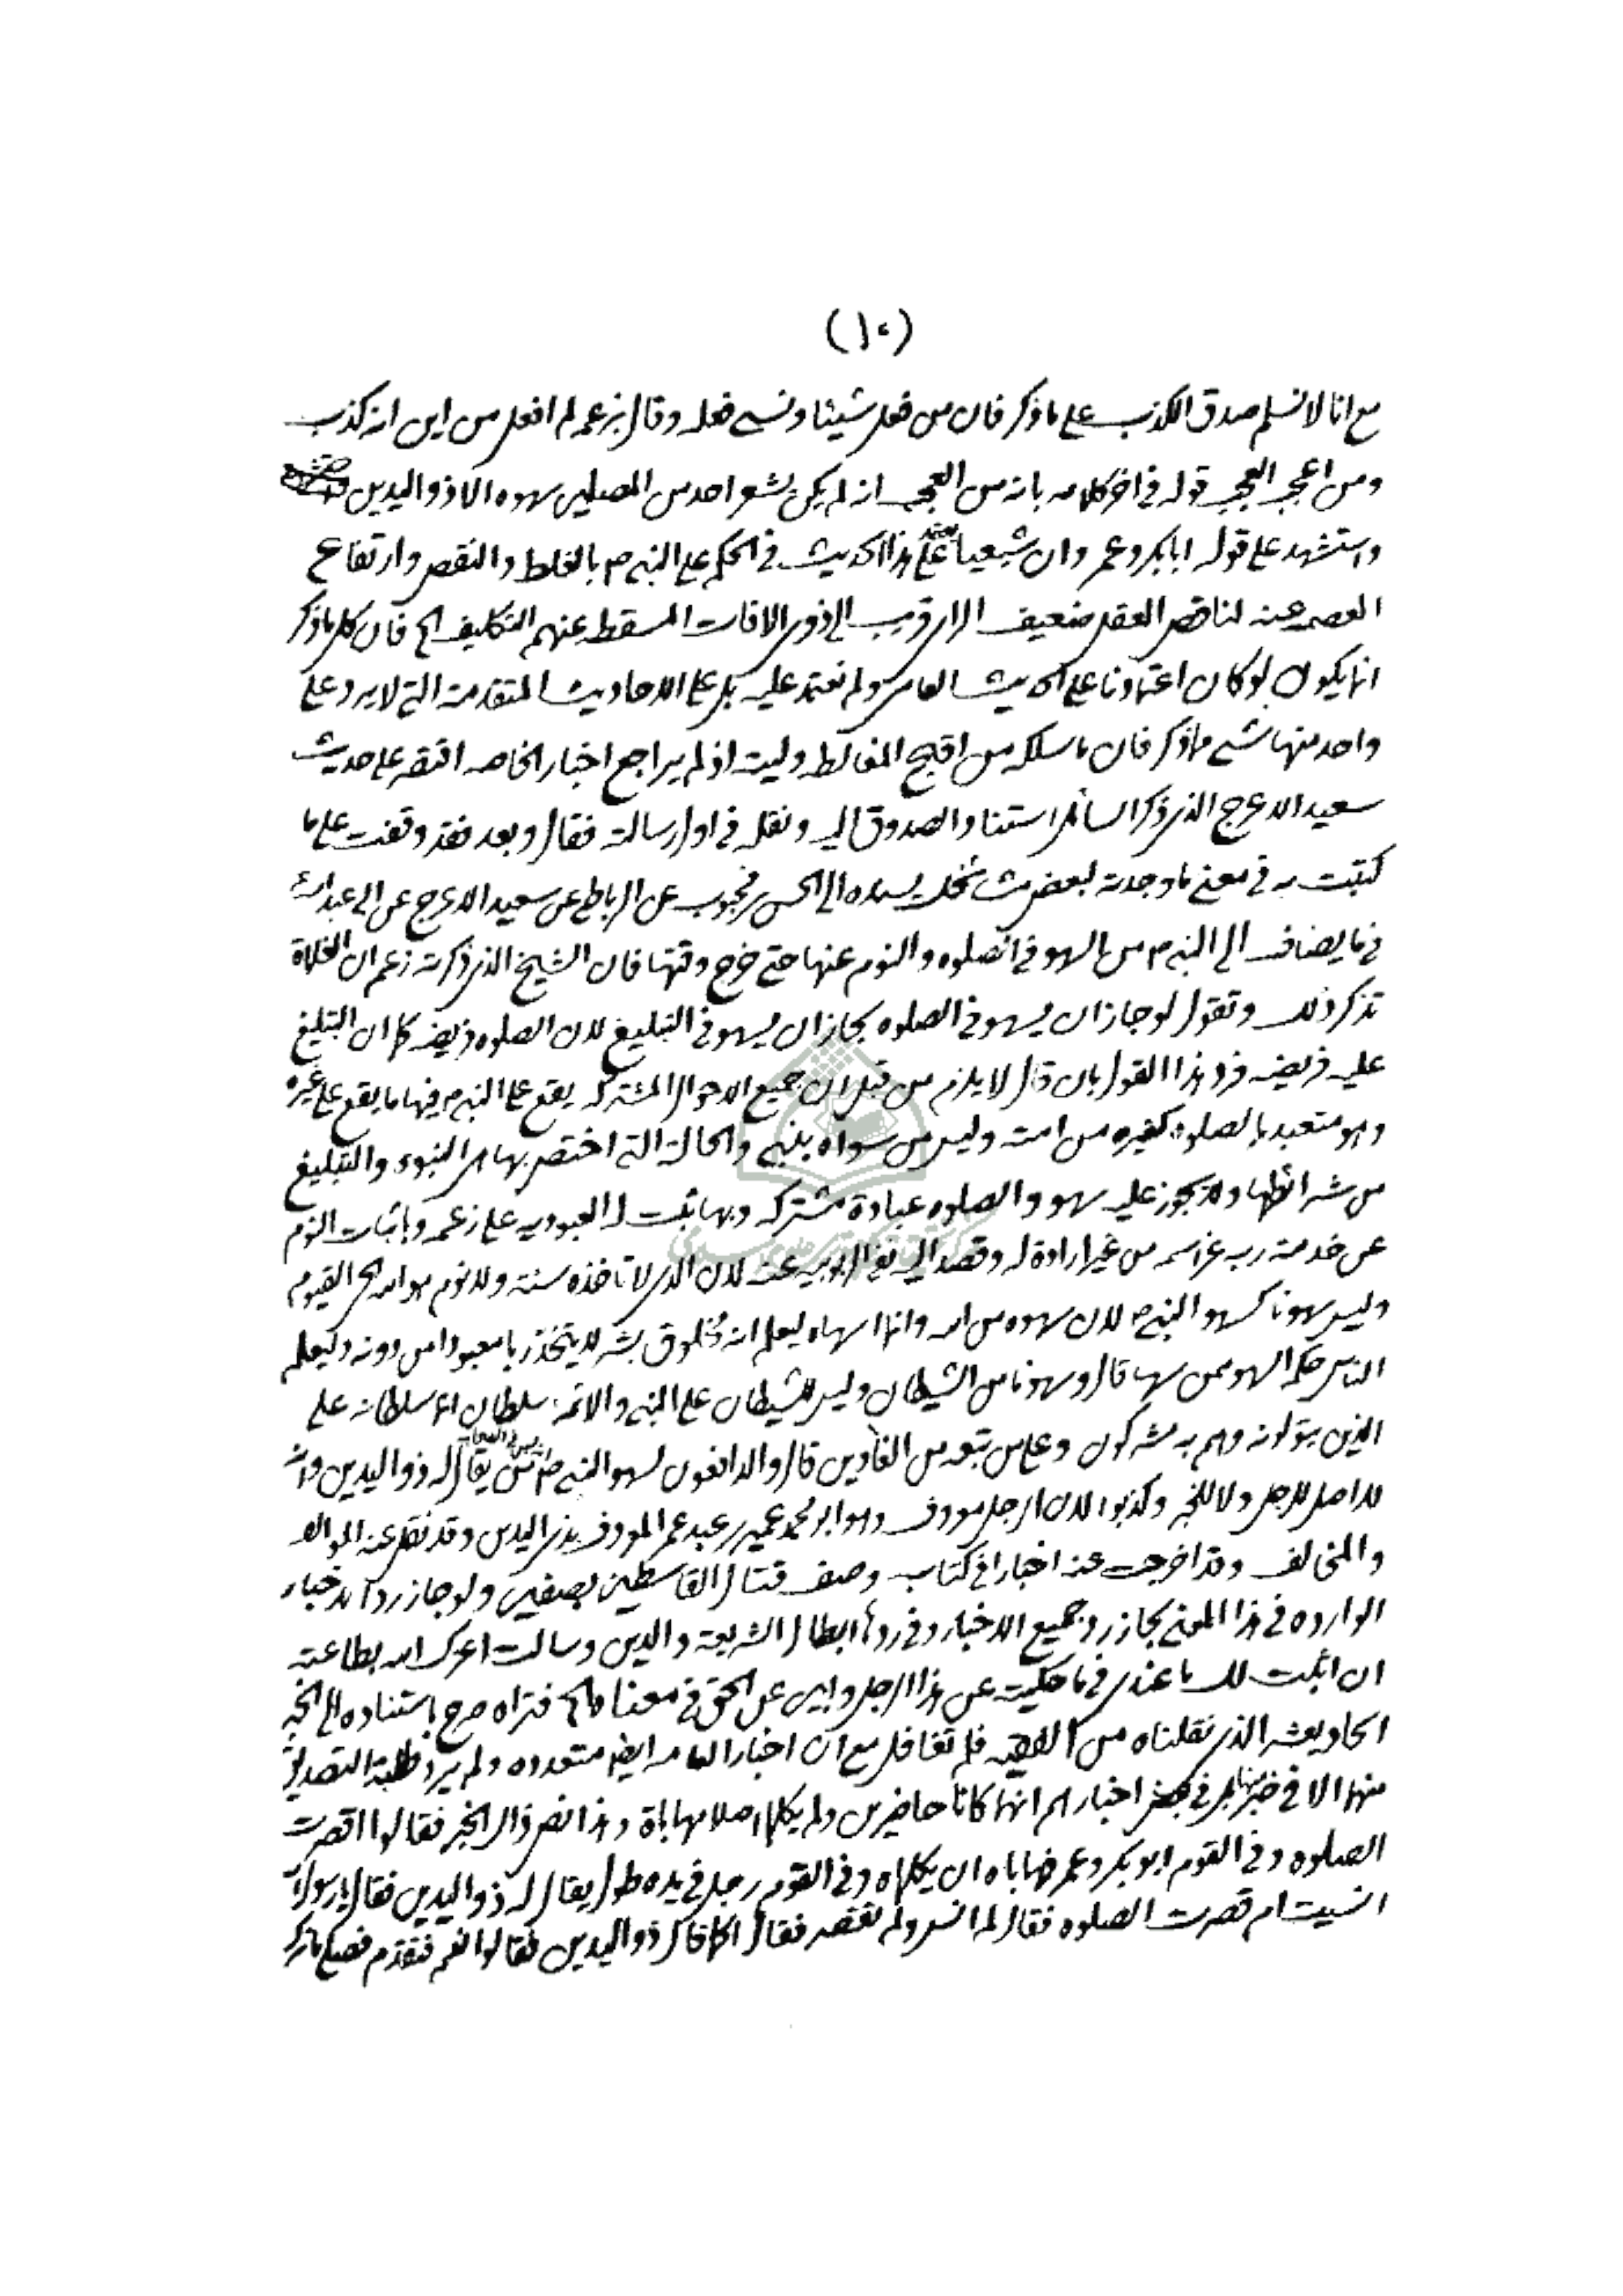 (١٠)
مع انا لا نسلم صدق الكذب على ما ذكر فان من فعل شيئا ونسى فعله وقال بزعمه لم افعل من اين انه كذب
ومن اعجب العجب قوله في اخر كلامه بانه من العجب انه لم يكن يشعر احد من المصلين سهوه الا ذو اليدين
واستشهد على قوله ابا بكر وعمر وان شيعيا يعتمد على هذا الحديث في الحكم على النبي ص بالغلط والنقص وارتفاع
العصمه عنه لناقص العقل ضعيف الراى قريب الى ذوى الافات المسقطه عنهم التكليف الخ فان كل ما ذكر
انما يكون لو كان اعتمادنا على الحديث العامى ولم نعتمد عليه بل على الاحاديث المتقدمة التى لا يرد على
واحد منها شى مما ذكر فان ما سلكه من اقبح المغالطه وليت اذ لم يراجع اخبار الخاصه اقتصر على حديث
سعيد الاعرج الذى ذكر السائل استناد الصدوق اليه ونقله في اول رسالته فقال وبعد فقد وقفت على ما
كتبت به في معنى ما وجدته لبعض مشائخك يسنده الى الحسن بن محبوب عن الرباطى عن سعيد الاعرج عن ابى عبد الله
فى ما يضاف الى النبى ص من السهو فى الصلوه والنوم عنها حتى خرج وقتها فان الشيخ الذى ذكرته زعم ان الغلاة
تنكر ذلك وتقول لو جاز ان يسهو فى الصلوه لجاز ان يسهو فى التبليغ لان الصلوه فريضه كما ان التبليغ
عليه فريضه فرد هذا القول بان قال لا يلزم من قبل ان جميع الاحوال المشتركه يقع على النبى ص فيها ما يقع على غيره
وهو متعبد بالصلوه كغيره من امته وليس من سواه بنبى والحالة التى اختص بها هى النبوه والتبليغ
من شرائطها ولا يجوز عليه سهو والصلوه عبادة مشتركه وبها تثبت له العبوديه على زعمه وباثبات النوم
عن خدمة ربه عز اسمه من غير ارادة له وقصد اليه نفى الربوبيه عنه لان الذى لا تاخذه سنة ولا نوم هو الله الحى القيوم
وليس سهونا كسهو النبى ص لان سهوه من الله وانما اسهاه ليعلم انه مخلوق بشر لا يتخذ ربا معبودا من دونه وليعلم
الناس حكم السهو ممن سها قال وسهونا من الشيطان وليس للشيطان على النبى والائمه سلطان انما سلطانه على
الذين يتولونه وهم به مشركون وعلى من تبعه من الغاوين قال والدافعون لسهو النبى ص يقال له ذو اليدين وانه
لا اصل للرجل ولا للخبر وكذبوا لان الرجل معروف وهو ابو محمد عمير بن عبد عمر المعروف بذى اليدين وقد نقل عنه الموالف
والمخالف وقد اخرجت عنه اخبارا فى كتاب وصف قتال القاسطين بصفين ولو جاز رد الاخبار
الوارده فى هذا المعنى لجاز رد جميع الاخبار وفى ردها ابطال الشريعة والدين وسالت اعزك الله بطاعته
ان اثبت لك ما عندى فى ما حكيته عن هذا الرجل وابين عن الحق فى معناه الخ فتراه صرح باستناده الى الخبر
الحاديعشر الذى نقلناه من الفقيه فلم تغافل مع ان اخبار العامه ايضا متعدده ولم يرد طلبة التصديق
منهما الا فى خبر منها بل فى بعض اخبارهم انهما كانا حاضرين ولم يكلما اصلا مهاباة وهذا نص ذالك الخبر فقالوا اقصرت
الصلوه وفى القوم ابو بكر وعمر فهاباه ان يكلماه وفى القوم رجل فى يده طول يقال له ذو اليدين فقال يا رسول الله
انسيت ام قصرت الصلوه فقال لم انس ولم تقصر فقال اكما قال ذو اليدين فقالوا نعم فتقدم فصلى ما ترك